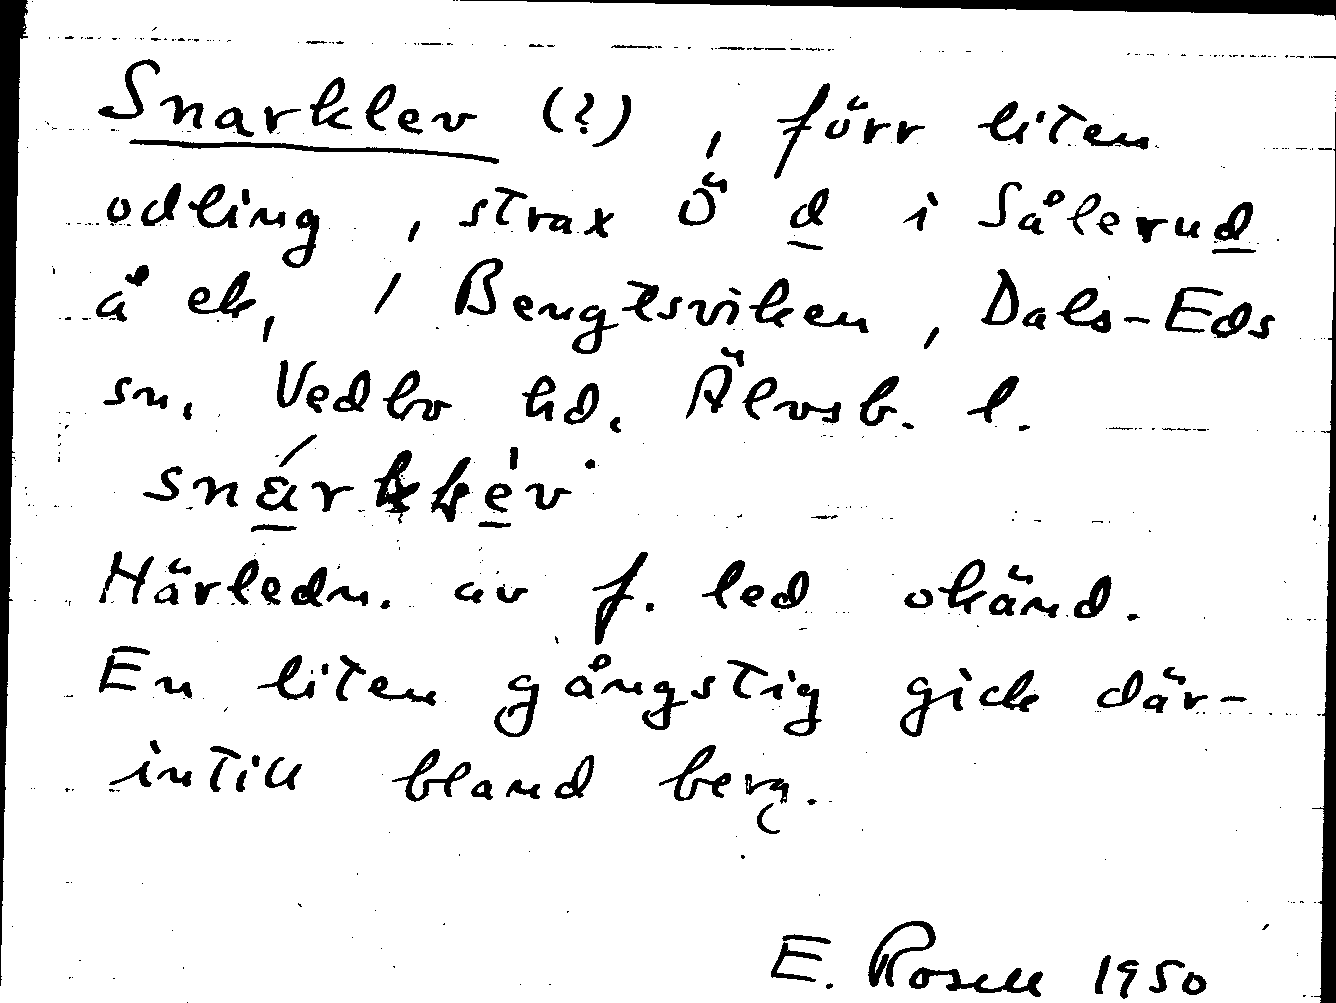 Snarklev (?) , förr liten
odling , strax Ö d i Sålerud
å ek, / Bengtsviken , Dals-Eds
sn. Vedbo hd. Älvsb. l.
Härledn. av f. led okänd.
En liten gångstig gick där-
intill bland berg.
E. Rosell 1950